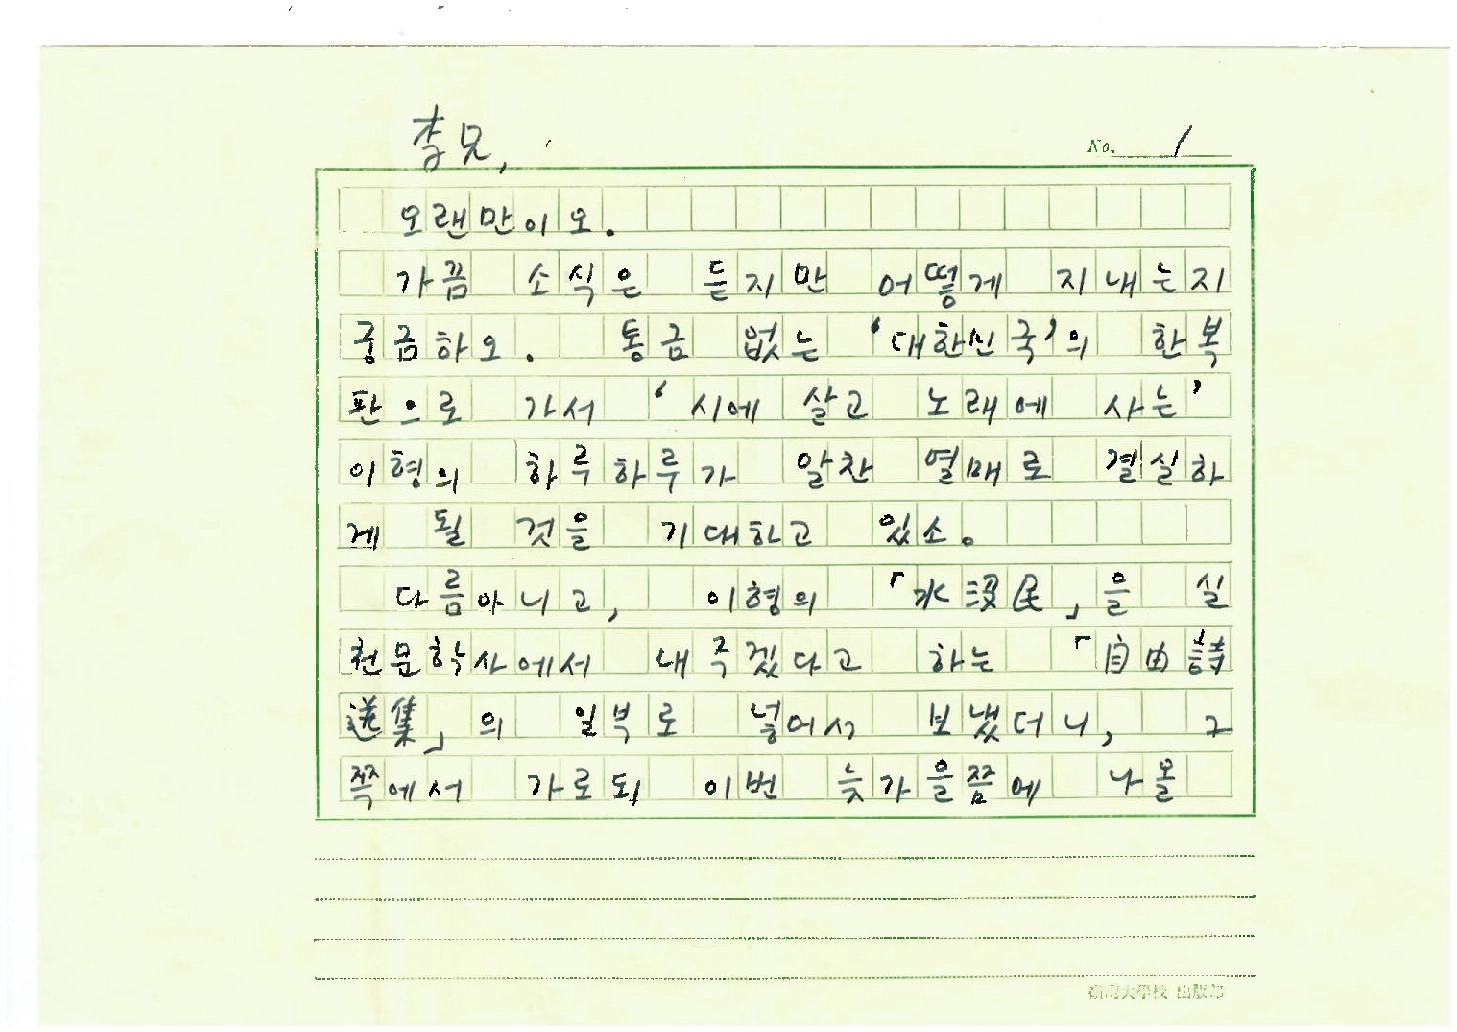 李兄,
No. 1
오랜만이오.
가끔 소식은 듣지만 어떻게 지내는지
궁금하오. 통금 없는 '대한신국'의 한복
판으로 가서 '시에 살고 노래에 사는'
이형의 하루하루가 알찬 열매로 결실하
게 될 것을 기대하고 있소.
다름아니고, 이형의 「水没民」을 실
천문학사에서 내주겠다고 하는 「自由詩
選集」의 일부로 넣어서 보냈더니, 그
쪽에서 가로되 이번 늦가을쯤에 나올
大學校 出版部